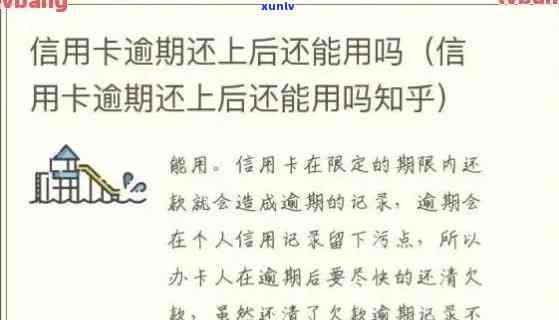 xunlv
信用卡逾期还上后还能用吗（信
用卡逾期还上后还能用吗知乎）
能用。信用卡在限定的期限内还
款就会造成逾期的记录，逾期会
在个人信用记录留下污点，所以
办卡人在逾期后要尽快的还清欠
款，虽然还清了欠款逾期记录不